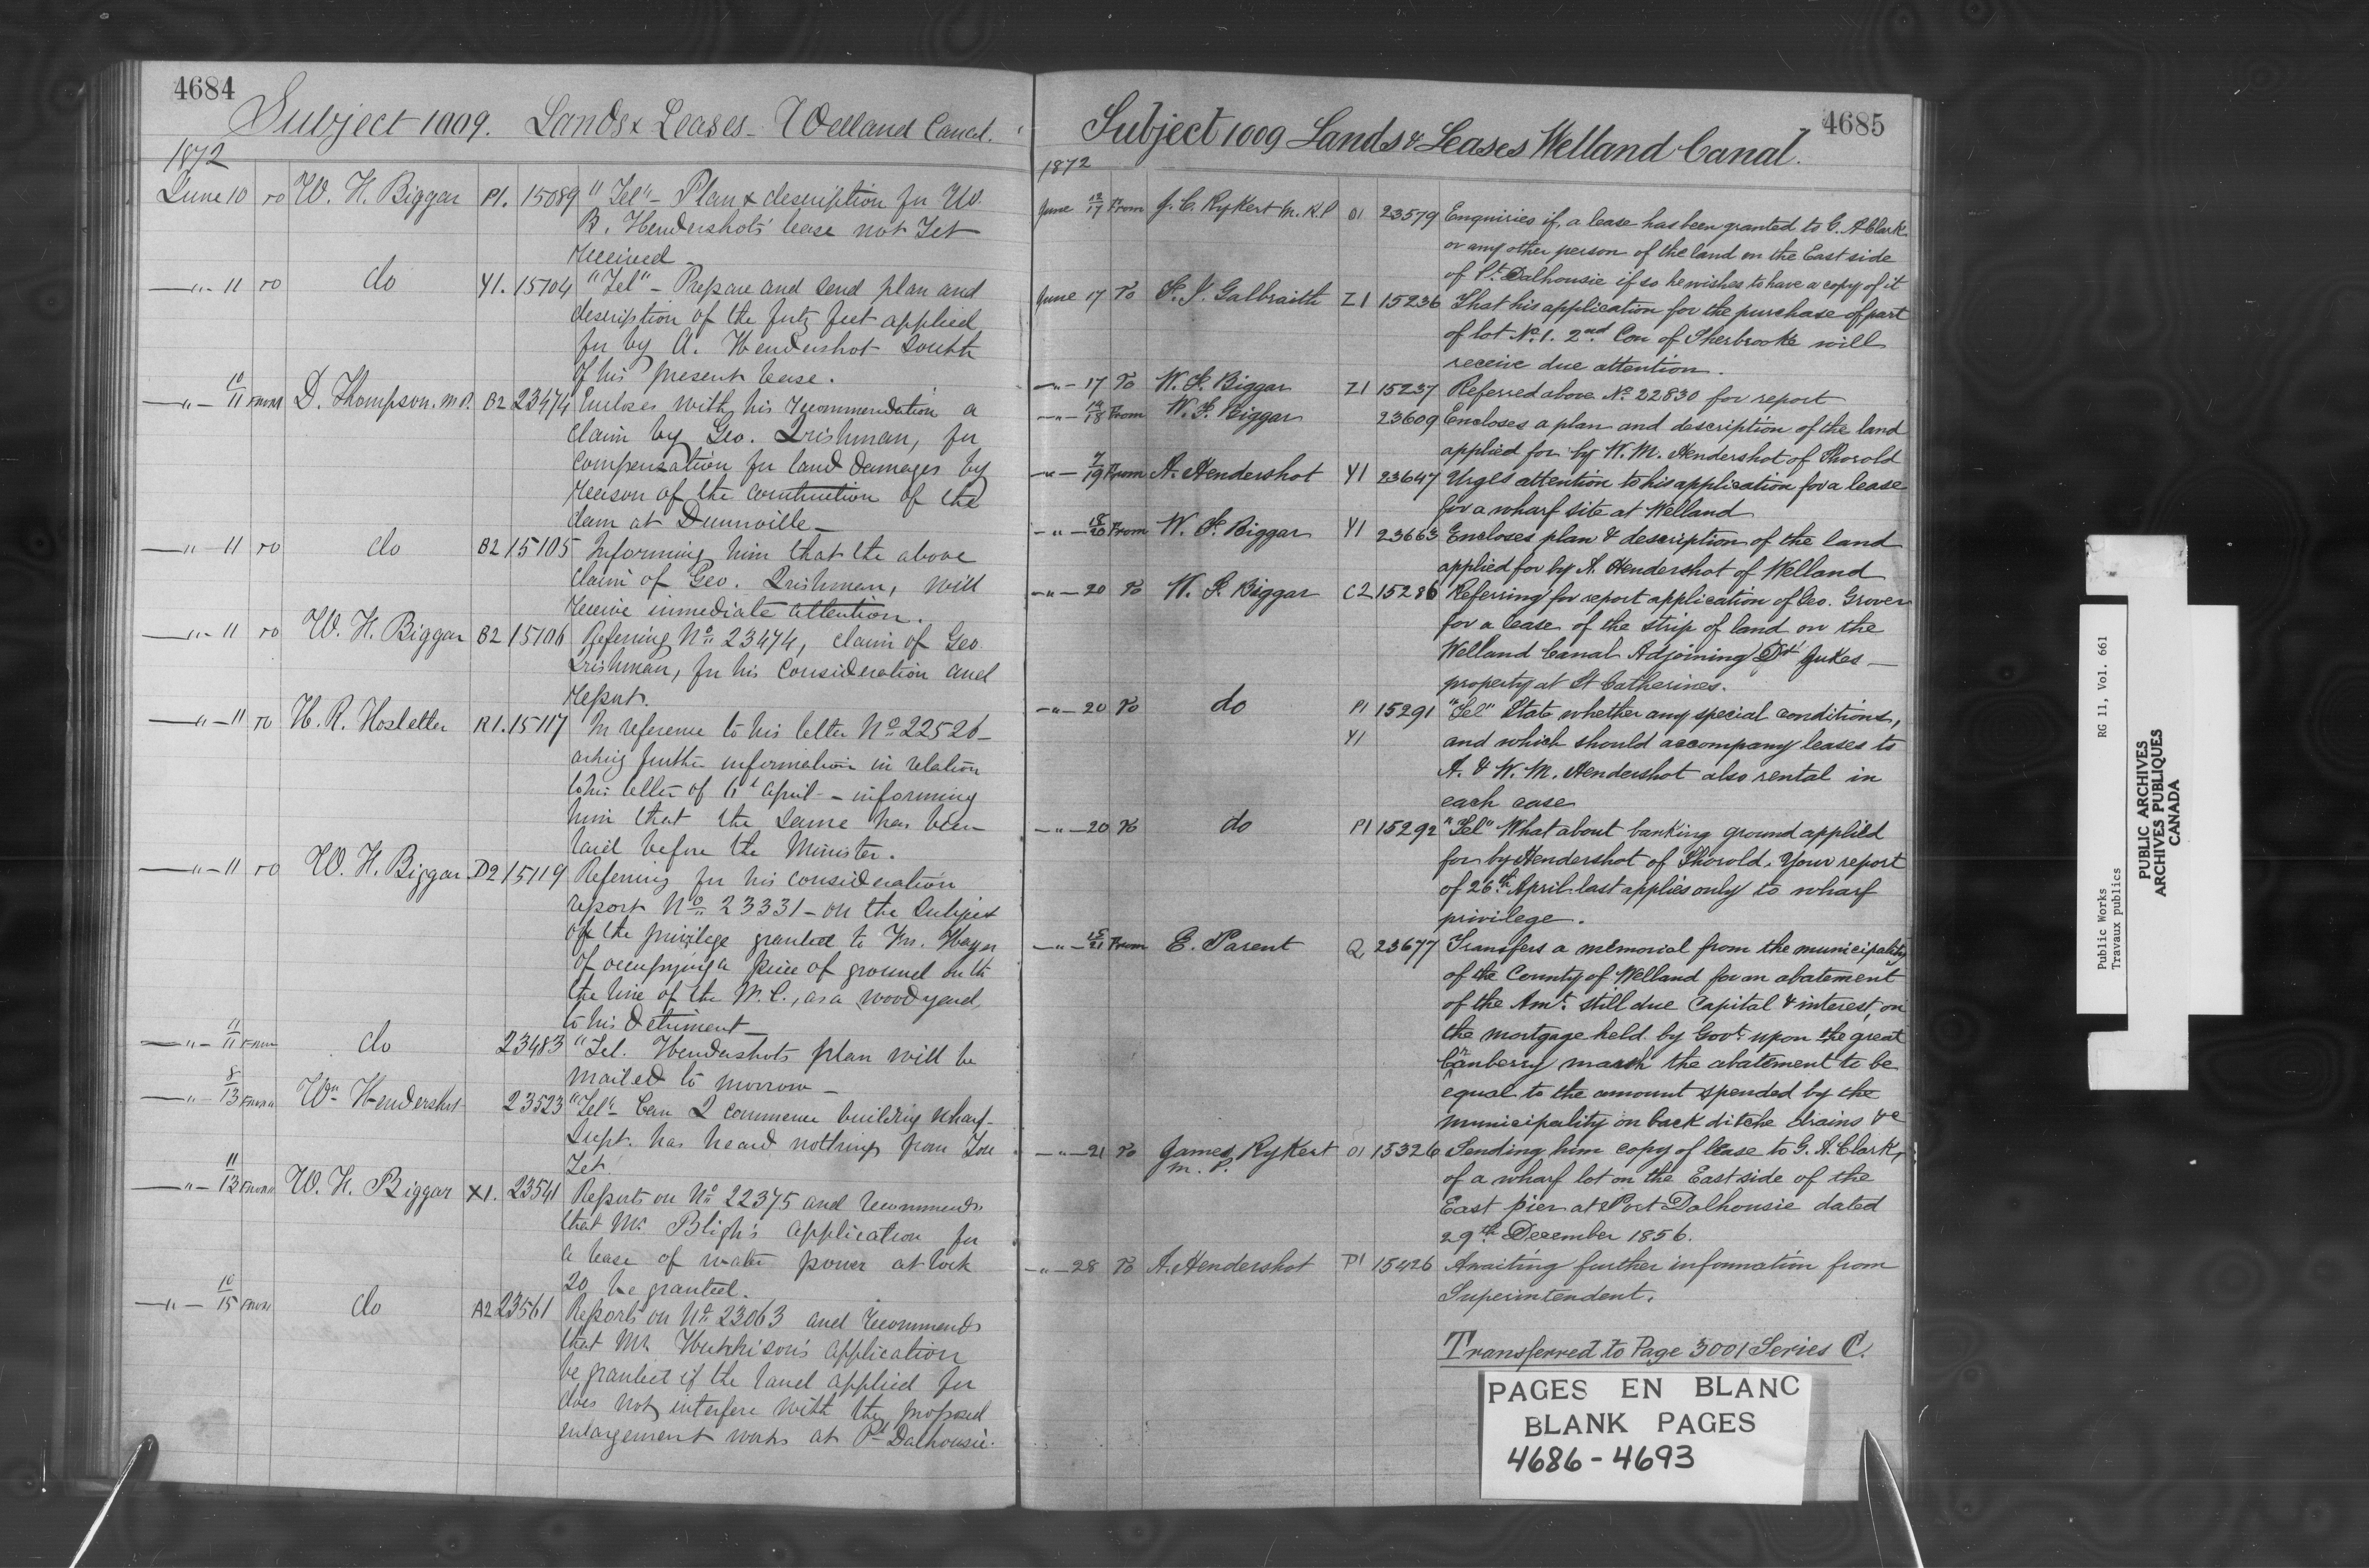 4684
Subject 1009. Lands & Leases - Welland Canal.
1872
June 10 To W. H. Biggar P1. 15089 "Tel" - Plan & description for W.
B. Hendershots' lease not Yet
received -
" 11 To do Y1. 15104 "Tel" - Prepare and send plan and
description of the forty feet applied
for by A. Hendershot South
of his present lease.
" 10/11 From D. Thompson. M.P. B2 23474 Encloses with his recommendation a
claim by Geo. Irishman, for
compensation for land damages by
reason of the construction of the
dam at Dunnville -
" 11 To do B2 15105 Informing him that the above
claim of Geo. Irishman, will
receive immediate attention.
" 11 To W. H. Biggar B2 15106 Referring No. 23474, claim of Geo.
Irishman, for his consideration and
report.
" 11 To H. R. Hostetter R1. 15117 In reference to his letter No. 22526 -
asking further information in relation
to his letter of 6t April - informing
him that the same has been
laid before the Minister.
" 11 To W. H. Biggar D2 15119 Referring for his consideration
report No. 23331 - on the subject
of the privilege granted to
of occupying a piece of ground on th
the line of the W.C., as a wood yard,
to his detriment -
" 11/11 From do 23483 "Tel. Hendershots plan will be
mailed to morrow -
" 8/13 From Wm Hendershot 23523 "Tel" - Can I commence building wharf -
Supt. has heard nothing from You
Yet.
" 11/13 From W. H. Biggar X1. 23541 Reports on No. 22375 and recommends
that Mr. Bligh's application for
a lease of water power at lock
20 be granted.
" 10/15 From do A2 23561 Reports on No. 23063 and recommends
that Mr. Hutchison's application
be granted if the land applied for
does not interfere with the proposed
enlargement works at Pt Dalhousie.
4685
Subject 1009 Lands & Leases Welland Canal.
1872
June 12/17 From J. C. Rykert M.P.P O1 23579 Enquiries if, a lease has been granted to C. A Clark
or any other person of the land on the East side
of Pt. Dalhousie if so he wishes to have a copy of it
June 17 To F. J. Galbraith Z1 15236 That his application for the purchase of part
of lot No. 1. 2nd Con of Sherbrooke will
receive due attention.
" 17 To W. F. Biggar Z1 15237 Referred above No 22830 for report
" 14/18 From W. F. Biggar 23609 Encloses a plan and description of the land
applied for by W. M. Hendershot of Thorold
" 7/19 From A. Hendershot Y1 23647 Urges attention to his application for a lease
for a wharf site at Welland
" 18/20 From W. F. Biggar Y1 23663 Encloses plan & description of the land
applied for by A. Hendershot of Welland
" 20 To W. F. Biggar C2 15286 Referring for report application of Geo. Grover
for a lease of the strip of land on the
Welland Canal Adjoining Dr. Jukes
property at St Catherines.
" 20 To do P1 15291 "Tel" State whether any special conditions,
Y1 and which should accompany leases to
A. & W. M. Hendershot also rental in
each case
" 20 To do P1 15292 "Tel" What about banking ground applied
for by Hendershot of Thorold. Your report
of 26th April last applies only to wharf
privilege.
" 15/21 From E. Parent Q1 23677 Transfers a memorial from the municipality
of the County of Welland for an abatement
of the Amt. still due Capital & interest, on
the mortgage held by Govt. upon the great
Canberry marsh the abatement to be
equal to the amount spended by the
municipality on back ditche drains &c
" 21 To James Rykert O1 15326 Sending him copy of lease to G. A. Clark,
M. P.
of a wharf lot on the East side of the
East pier at Port Dalhousie dated
29th December 1856.
" 28 To A. Hendershot P1 15426 Awaiting further information from
Superintendent.
Transferred to Page 3001 Series C.
PAGES EN BLANC
BLANK PAGES
4686-4693
Public Works RG 11, Vol. 661
Travaux publics
PUBLIC ARCHIVES
ARCHIVES PUBLIQUES
CANADA